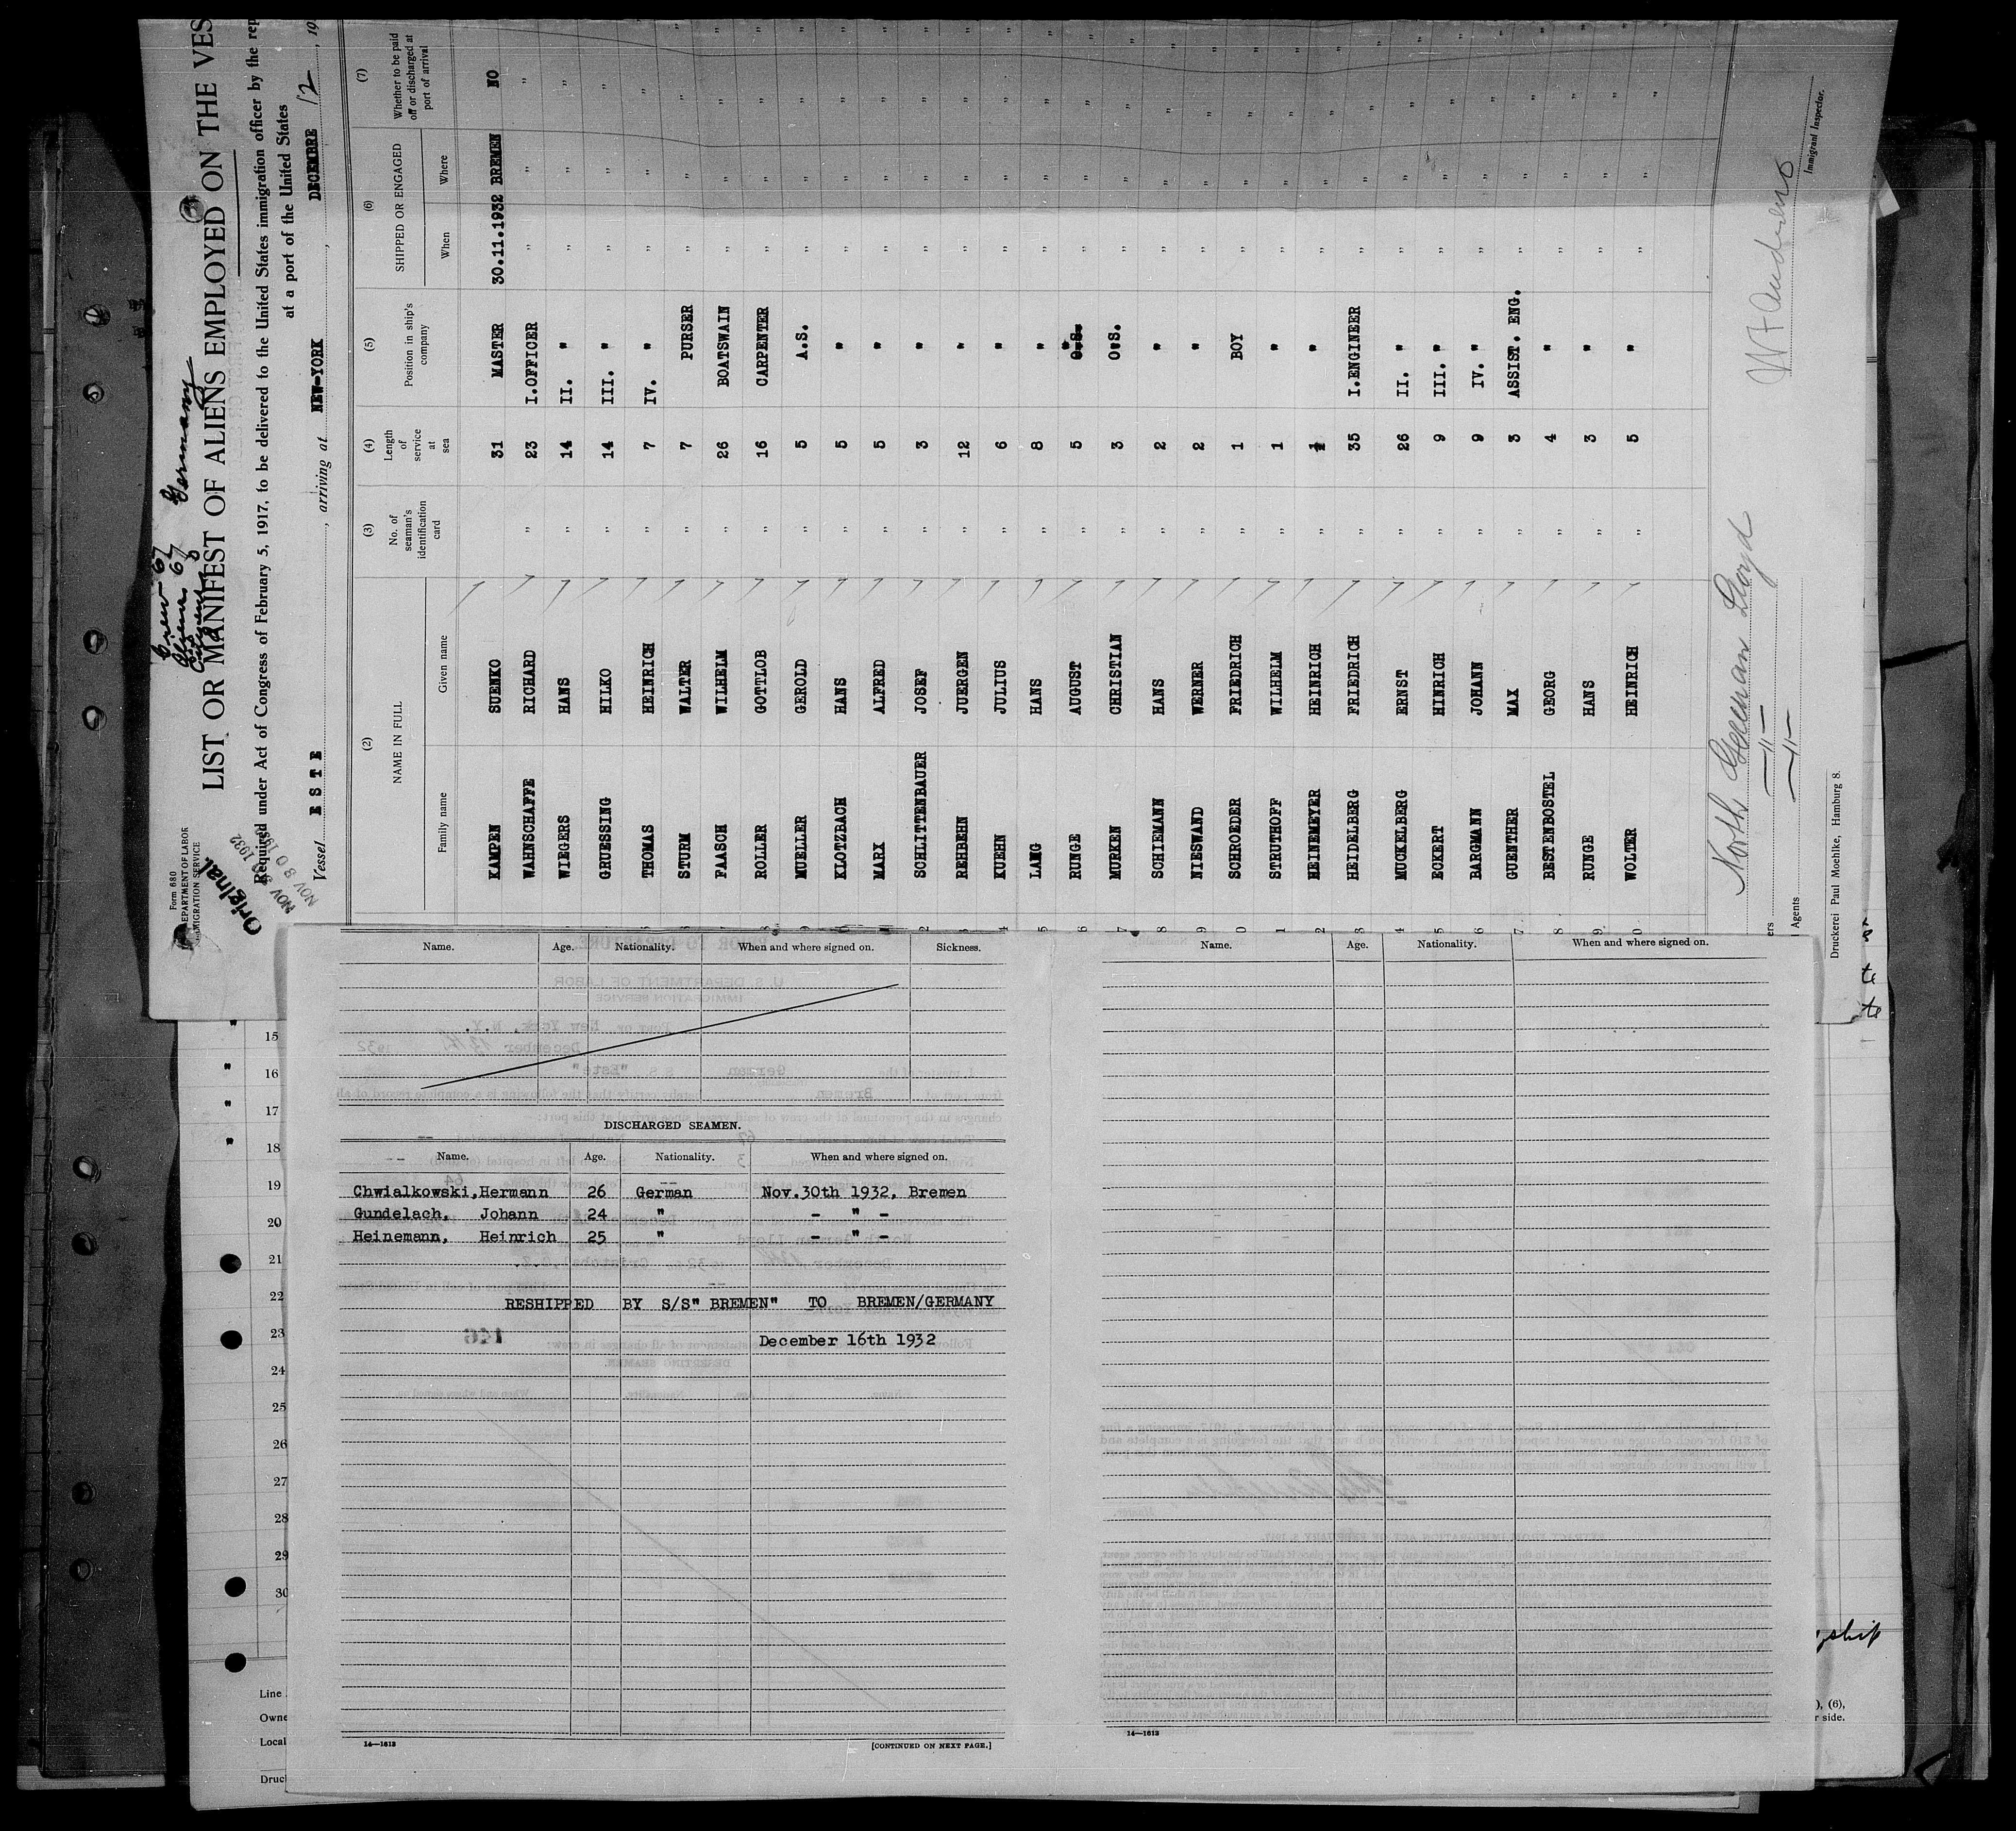 Form 680
DEPARTMENT OF LABOR
IMMIGRATION SERVICE
Original
Crew 67
Germany
LIST OR MANIFEST OF ALIENS EMPLOYED ON THE VES
Required under Act of Congress of February 5, 1917, to be delivered to the United States immigration officer by the rep
at a port of the United States
Vessel ESTE, arriving at NEW-YORK, DECEMBRE 12, 19
(2) (3) (4) (5) (6) (7)
NAME IN FULL
Family name Given name
No. of seaman's identification card
Length of service at sea
Position in ship's company
SHIPPED OR ENGAGED
When Where
Whether to be paid off or discharged at port of arrival
KAMPEN SUENKO 31 MASTER 30.11.1932 BREMEN NO
WAHNSCHAFFE RICHARD " 23 I.OFFICER " " "
WIEGERS HANS " 14 II. " " " "
GRUESSING HILKO " 14 III. " " " "
THOMAS HEINRICH " 7 IV. " " " "
STURM WALTER " 7 PURSER " " "
PAASCH WILHELM " 26 BOATSWAIN " " "
ROLLER GOTTLOB " 16 CARPENTER " " "
MUELLER GEROLD " 5 A.S. " " "
KLOTZBACH HANS " 5 " " " "
MARX ALFRED " 5 " " " "
SCHLITTENBAUER JOSEF " 3 " " " "
REHBEHN JUERGEN " 12 " " " "
KUEHN JULIUS " 6 " " " "
LANG HANS " 8 " " " "
RUNGE AUGUST " 5 " " " "
MURKEN CHRISTIAN " 3 O.S. " " "
SCHIEMANN HANS " 2 " " " "
NIESWAND WERNER " 2 " " " "
SCHROEDER FRIEDRICH " 1 BOY " " "
STRUTHOFF WILHELM " 1 " " " "
HEINEMEYER HEINRICH " " " " "
HEIDELBERG FRIEDRICH " 35 I.ENGINEER " " "
MUCKELBERG ERNST " 26 II. " " " "
ECKERT HINRICH " 9 III. " " " "
BARGMANN JOHANN " 9 IV. " " " "
GUENTHER MAX " 3 ASSIST. ENG. " " "
BESTENBOSTEL GEORG " 4 " " " "
RUNGE HANS " 3 " " " "
WOLTER HEINRICH " 5 " " " "
North German Lloyd
Agents
Immigrant Inspector.
Druckerei Paul Moehlke, Hamburg 8.
Name. Age. Nationality. When and where signed on. Sickness.
DISCHARGED SEAMEN.
Name. Age. Nationality. When and where signed on.
Chwialkowski, Hermann 26 German Nov.30th 1932, Bremen
Gundelach, Johann 24 " - " -
Heinemann, Heinrich 25 " - " -
RESHIPPED BY S/S" BREMEN" TO BREMEN/GERMANY
December 16th 1932
14—1613
[CONTINUED ON NEXT PAGE.]
Name. Age. Nationality. When and where signed on.
14—1613
15
16
17
18
19
20
21
22
23
24
25
26
27
28
29
30
Line
Owne
Local
Druc
), (6),
r side.